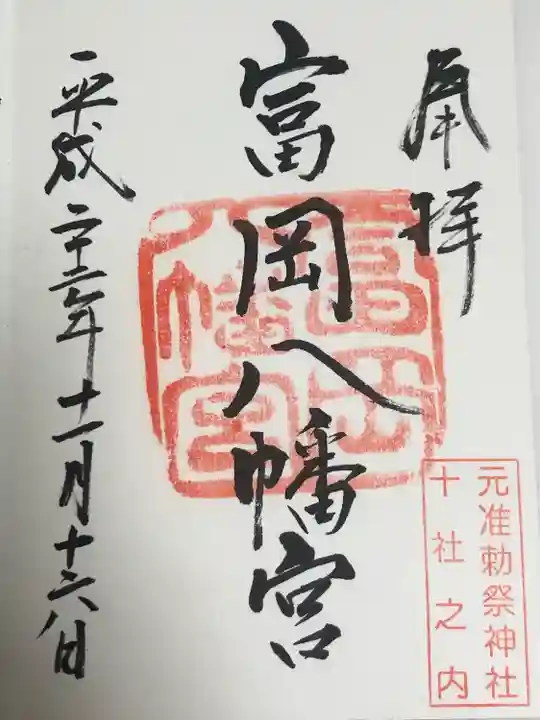 奉拝
元准勅祭神社
十社之内
富岡八幡宮
平成二十二年十一月十六日